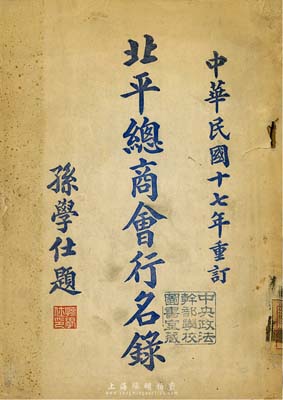 中華民國十七年重訂
北平總商會行名錄
孫學仕題
中央政法
幹部學校
圖書室藏
上海陽明拍賣